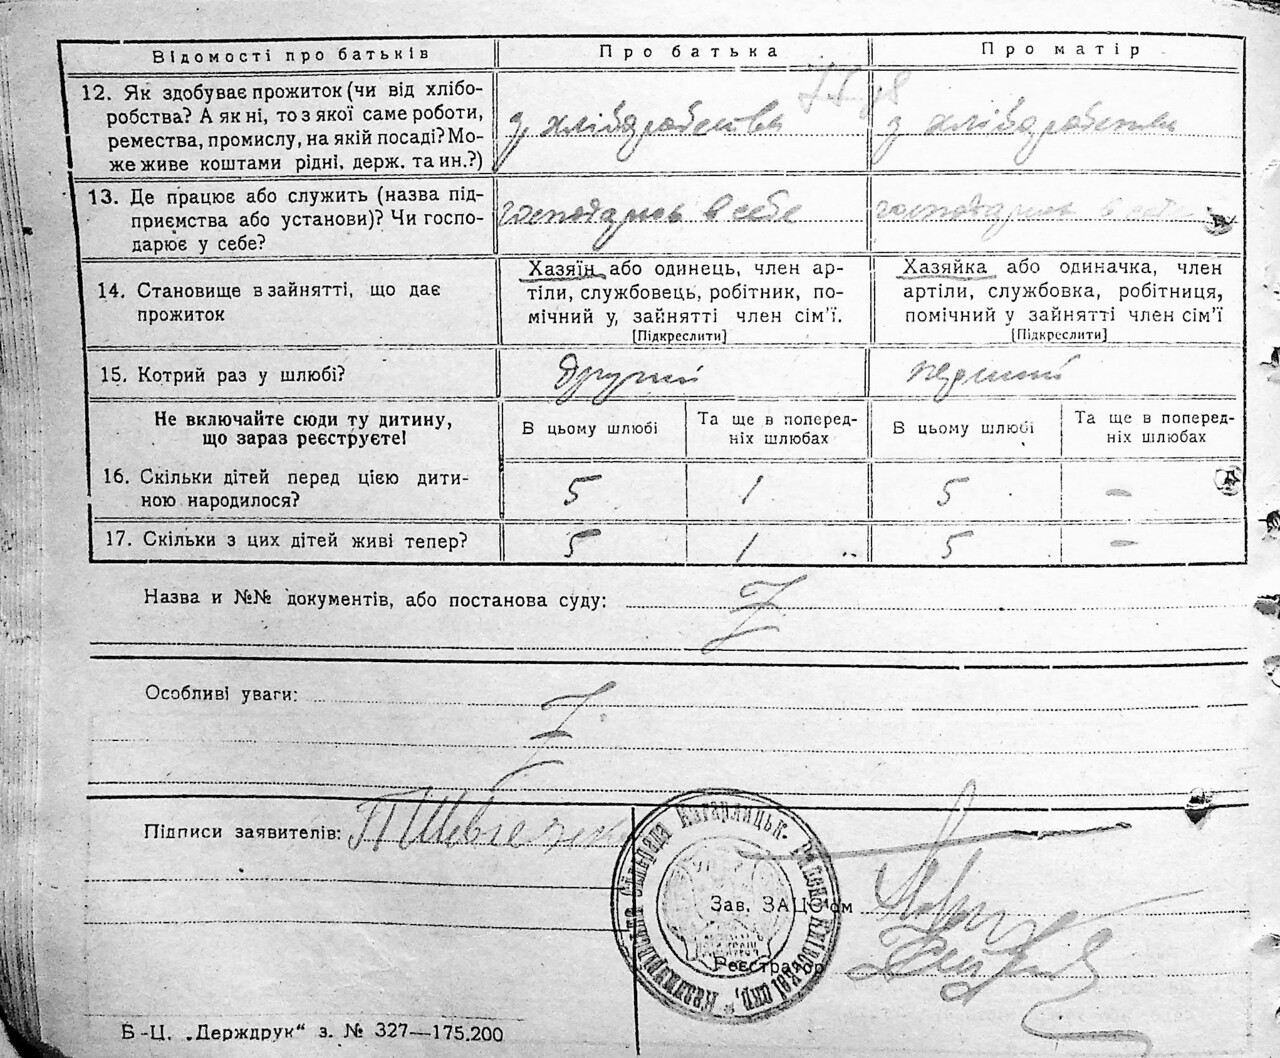 Відомості про батьків
Про батька
Про матір
12. Як здобуває прожиток (чи від хлібо-
робства? А як ні, то з якої саме роботи,
ремества, промислу, на якій посаді? Мо-
же живе коштами рідні, держ. та ин.?)
з хліборобства
з хліборобства
13. Де працює або служить (назва під-
приємства або установи)? Чи госпо-
дарює у себе?
господарює в себе
господарює в себе
14. Становище в зайнятті, що дає
прожиток
Хазяїн або одинець, член ар-
тіли, службовець, робітник, по-
мічний у, зайнятті член сім'ї.
[Підкреслити]
Хазяйка або одиначка, член
артіли, службовка, робітниця,
помічний у зайнятті член сім'ї
[Підкреслити]
15. Котрий раз у шлюбі?
другий
перший
Не включайте сюди ту дитину,
що зараз реєструєте!
В цьому шлюбі
Та ще в поперед-
ніх шлюбах
В цьому шлюбі
Та ще в поперед-
ніх шлюбах
16. Скільки дітей перед цією дити-
ною народилося?
5
1
5
-
17. Скільки з цих дітей живі тепер?
5
1
5
-
Назва и №№ документів, або постанова суду:
Особливі уваги:
Підписи заявителів: П Шевченко
Зав. ЗАЦС'ом
Реєстратор
Б-Ц. „Держдрук" з. № 327—175.200